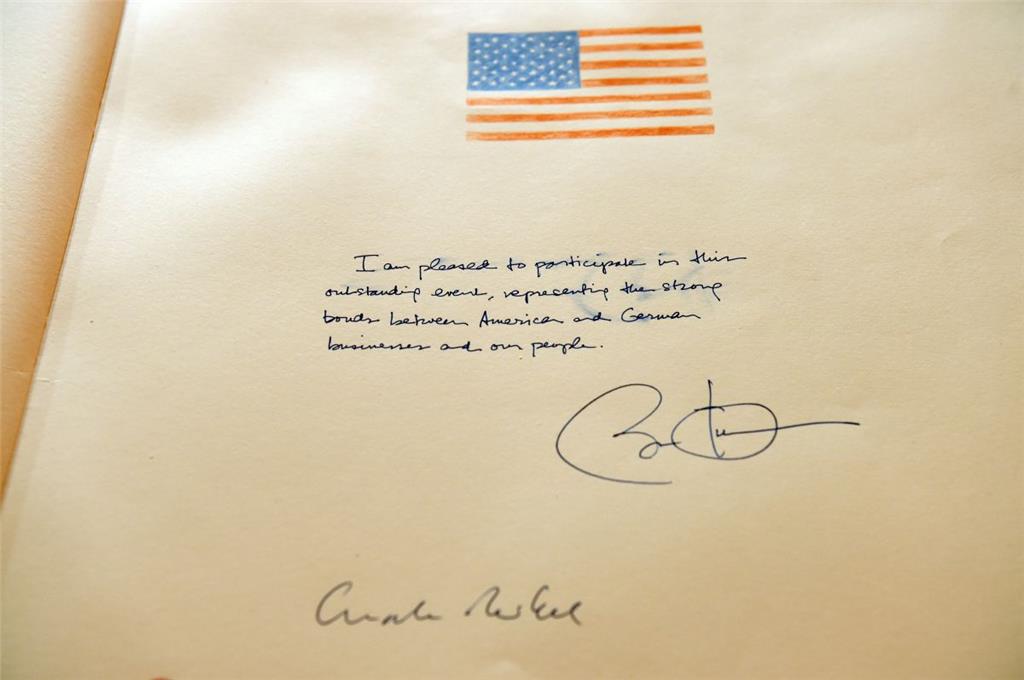 I am pleased to participate in this
outstanding event, representing the strong
bonds between American and German
businesses and our people.
Angela Merkel